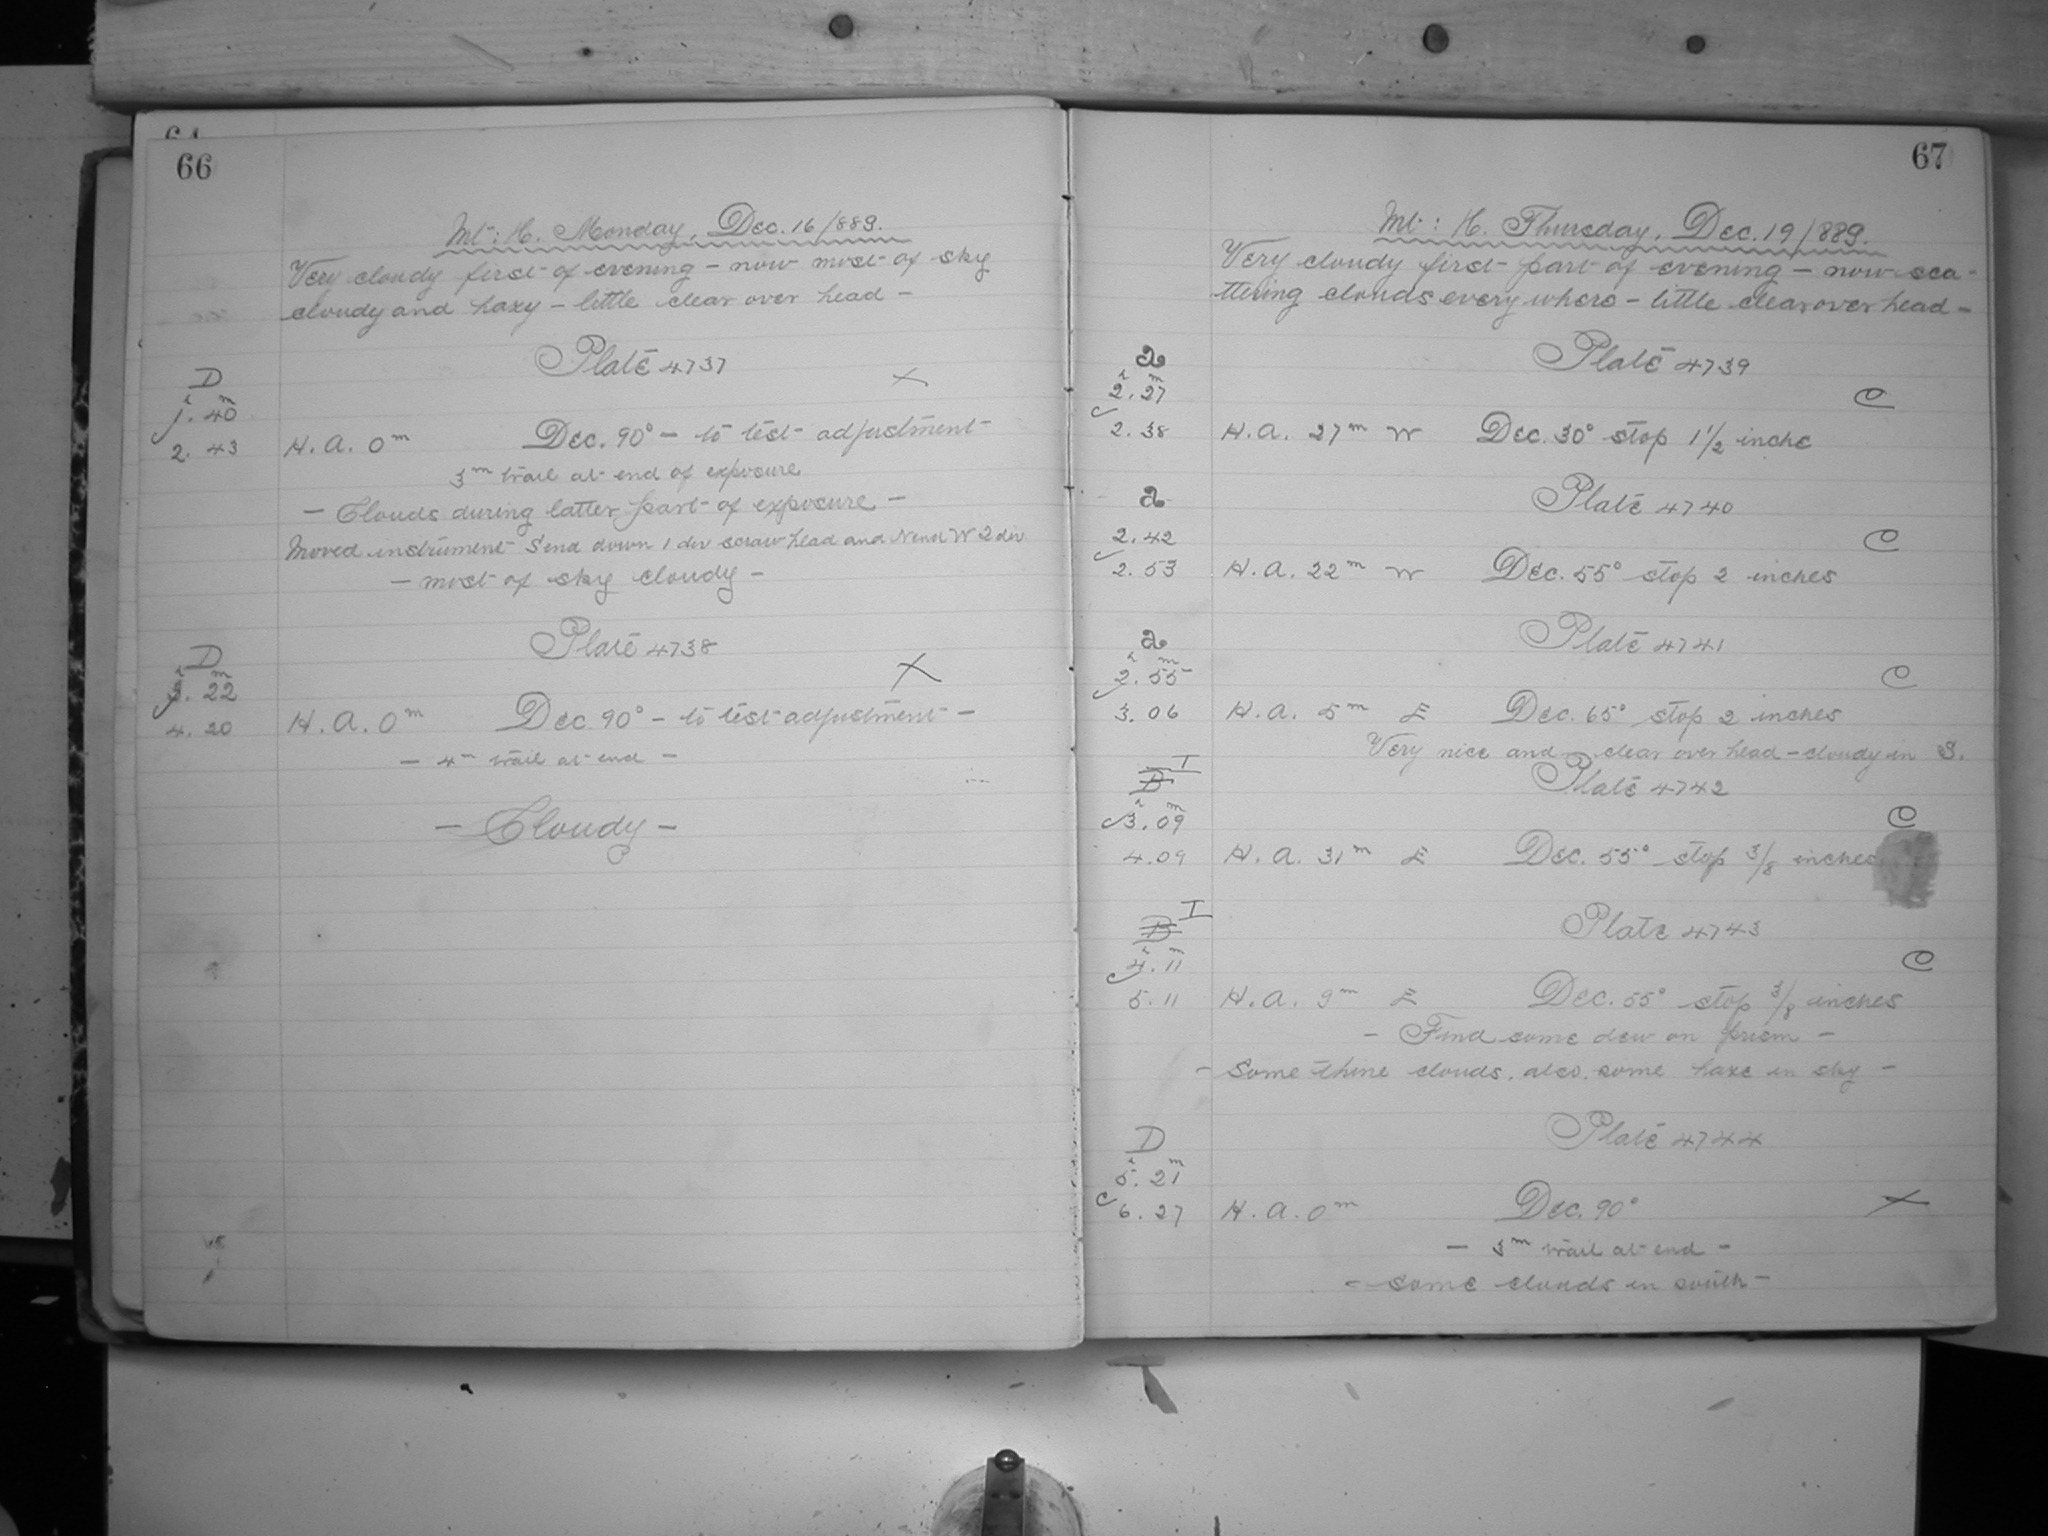 64
66
Mt: H. Monday, Dec. 16/889.
Very cloudy first of evening – now most of sky
cloudy and haxy – little clear over head –
Plate 4737
D
h m
1. 40
2. 43 H. A. 0m Dec. 90° – to test adjustment –
3m trail at end of exposure
– Clouds during latter part of exposure –
Moved instrument S end down 1 div scraw head and N end W 2 div
– most of sky cloudy –
Plate 4738
D
h m
3. 22
4. 20 H. A. 0m Dec. 90° – to test adjustment –
– 4m trail at end –
– Cloudy –
67
Mt: H. Thursday, Dec. 19/889.
Very cloudy first part of evening – now sca-
ttering clouds every where – little clear over head –
a Plate 4739
h m
2. 27 C
2. 38 H. A. 27m W Dec. 30° stop 1 1/2 inche
a Plate 4740
2. 42 C
2. 53 H. A. 22m W Dec. 55° stop 2 inches
a Plate 4741
h m
2. 55 C
3. 06 H. A. 5m E Dec. 65° stop 2 inches
Very nice and clear over head – cloudy in S.
B I Plate 4742
h m
3. 09 C
4. 09 H. A. 31m E Dec. 55° stop 3/8 inches
B I Plate 4743
h m
4. 11 C
5. 11 H. A. 9m E Dec. 55° stop 3/8 inches
– Find some dew on prism –
– Some thine clouds, also, some haxe in sky –
D Plate 4744
h m
5. 21
6. 27 H. A. 0m Dec. 90°
– 3m trail at end –
– some clouds in south –